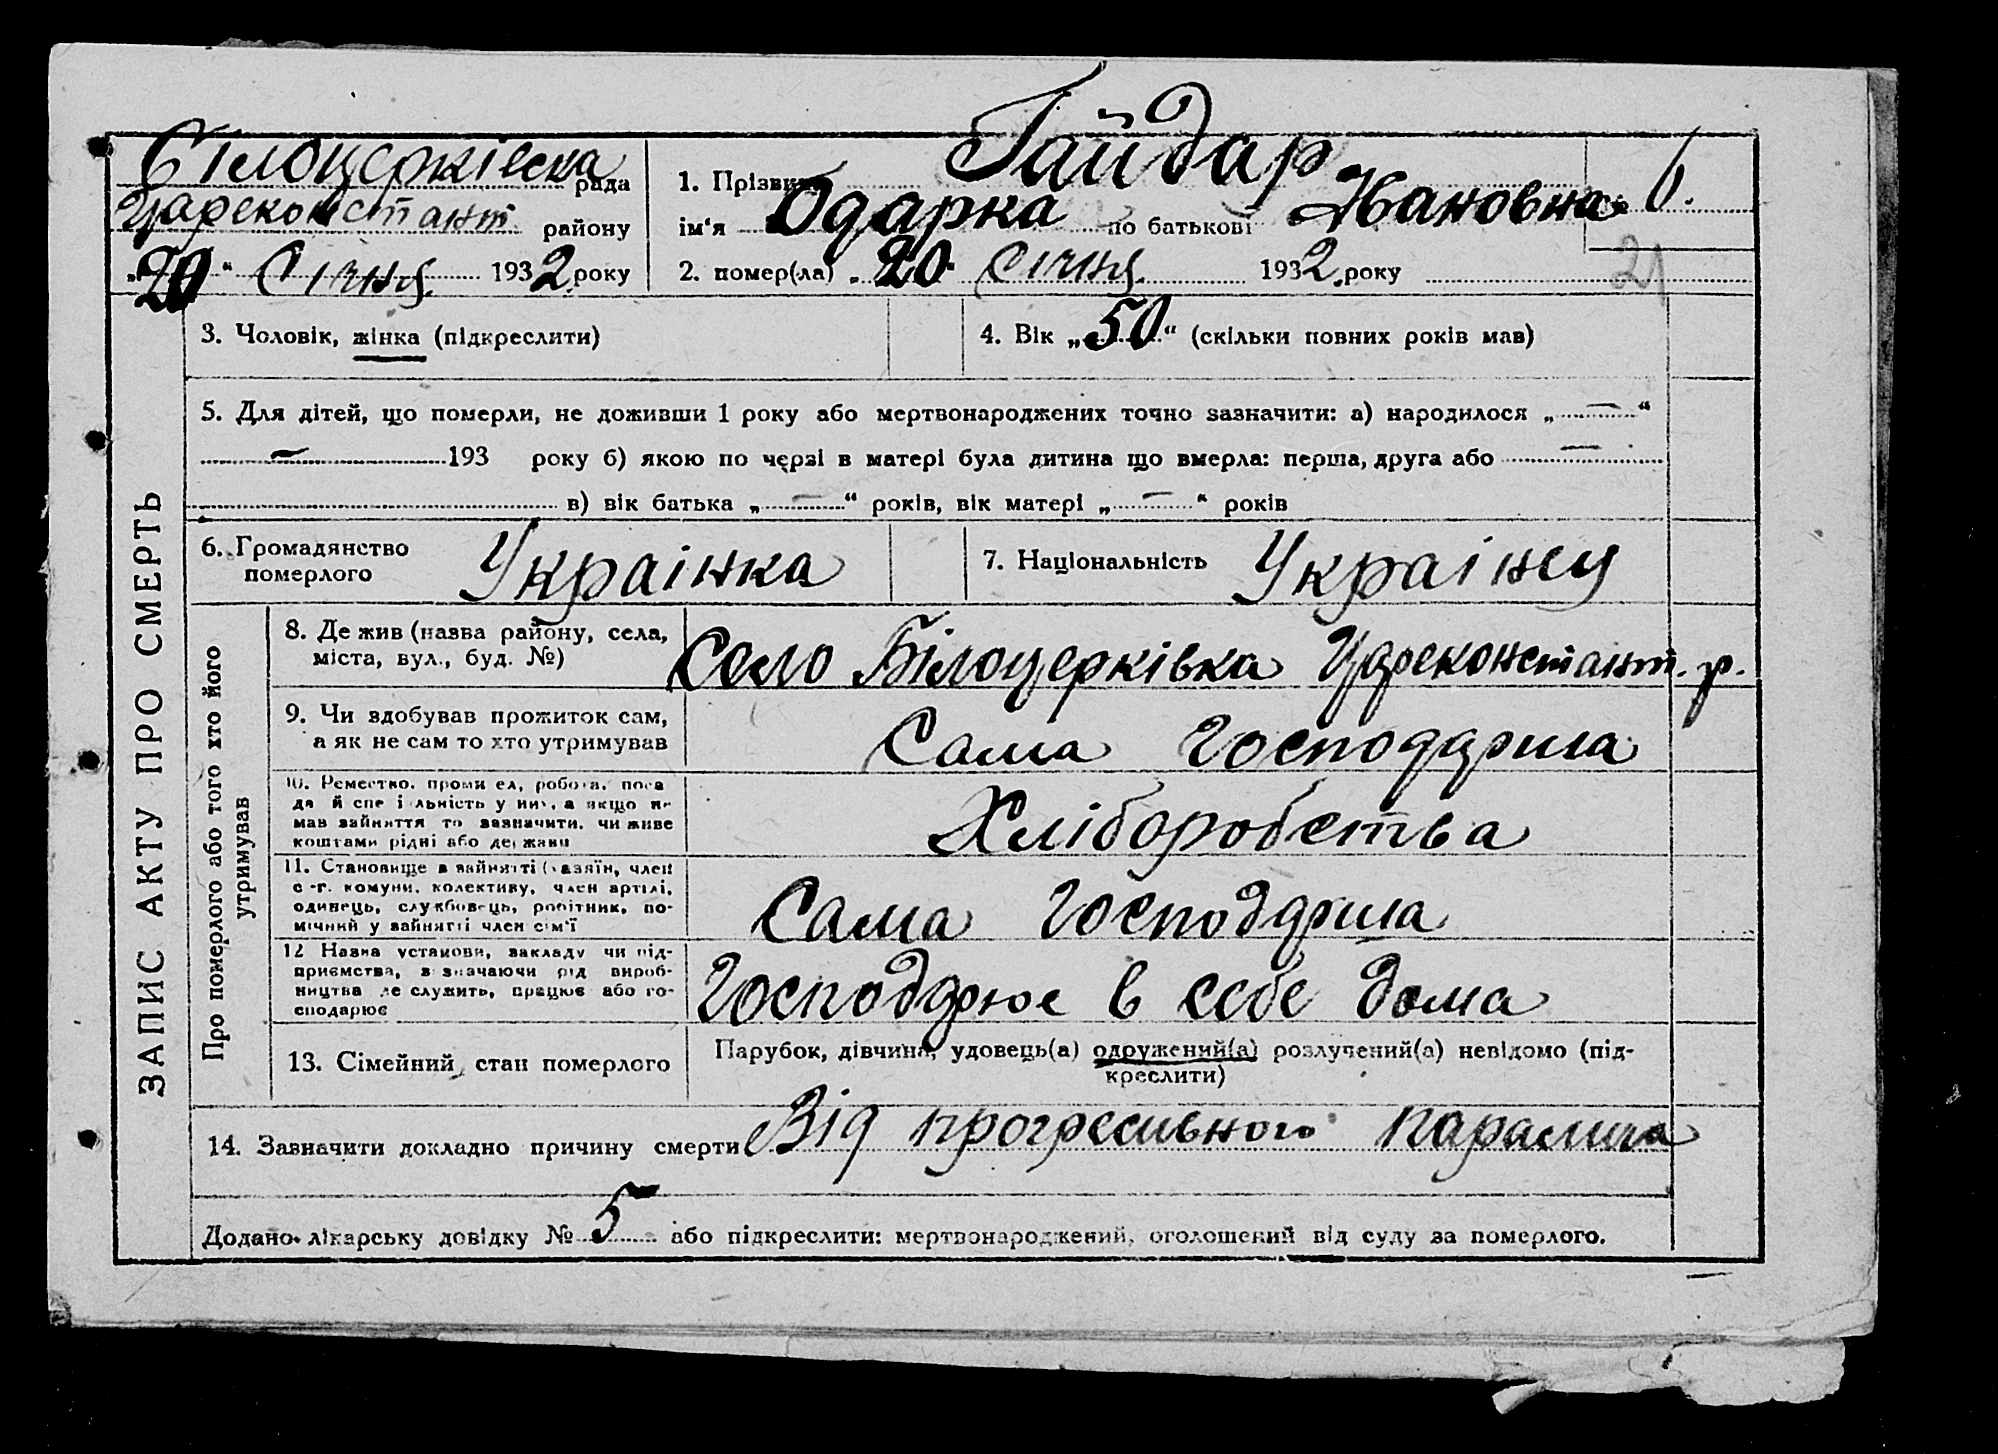 Гайдар
Білоцерківска рада
Цареконстант. району
„20“ Січня 1932 року
1. Прізвище
ім‘я Одарка по батькові Ивановна 6.
2. помер(ла) „20“ Січня 1932 року 21
ЗАПИС АКТУ ПРО СМЕРТЬ
3. Чоловік, жінка (підкреслити)
4. Вік „50“ (скільки повних років мав)
5. Для дітей, що померли, не доживши 1 року або мертвонароджених точно зазначити: а) народилося „—“
— 193 року б) якою по черзі в матері була дитина що вмерла: перша, друга або —
в) вік батька „—“ років, вік матері „—“ років
6. Громадянство
померлого Украінка
7. Національність Украінец
Про померлого або того хто його
утримував
8. Де жив (назва району, села,
міста, вул., буд. №)
Село Білоцерківка Цареконстант. р.
9. Чи здобував прожиток сам,
а як не сам то хто утримував
Сама Господарила
10. Ремество, промисел, робота, поса
да й спеціальність у них, а якщо не
мав зайняття то зазначити, чи живе
коштами рідні або держави
Хліборобства
11. Становище в зайнятті (хазяїн, член
с.-г. комуни, колективу, член артілі,
одинець, службовець, робітник, по-
мічний у зайнятті член сім'ї
Сама Господарила
12 Назва установи, закладу чи під-
приємства, взначаючи рід вироб-
ництва де служить, працює або го-
сподарює
Господарює в себе дома
13. Сімейний стан померлого
Парубок, дівчина, удовець(а) одружений(а) розлучений(а) невідомо (під-
креслити)
14. Зазначити докладно причину смерти Від прогресивного паралича
Додано лікарську довідку № 5 або підкреслити: мертвонароджений, оголошений від суду за померлого.